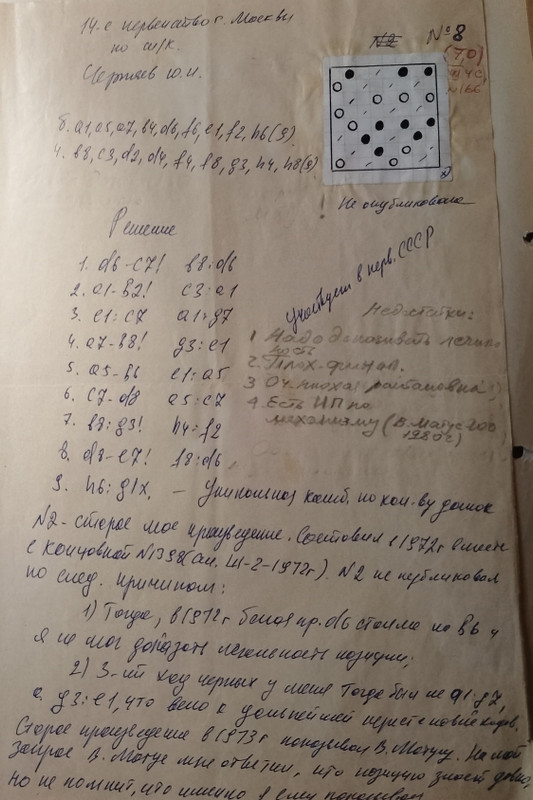 14-е первенство г. Москвы
по ш/к.
Черняев Ю.И.
№2 №8
(70)
б. a1, a5, a7, b4, d6, f6, e1, f2, h6 (9)
ч. b8, c3, d2, d4, f4, f8, g3, h4, h8 (9)
! Не опубликована
Решение
Участвует в перв. СССР
1. d6-c7! b8:d6
2. a1-b2! c3:a1
3. e1:c7 a1:g7
4. a7-b8! g3:e1
5. a5-b6 e1:a5
6. c7-d8 a5:c7
7. b8:g3! h4:f2
8. d8-e7! f8:d6
9. h6:g1x. – Уникальная комб. по кол-ву дамок
Недостатки:
1 Надо доказывать легаль
ность
2. Плох. финал.
3 Оч. плохая расстановка!
4. Есть ИП по
механизму (В. Матус 200
1980г)
№2 - старое мое произведение. Составил в 1972г вместе
с концовкой №1398 (см. Ш-2-1972г). №2 не публиковал
по след. причинам:
1) Тогда, в 1972г белая пр. d6 стояла на b6 и
я не мог доказать легальность позиции;
2) 3-ий ход черных у меня тогда был не a1:g7,
а g3:e1, что вело к дальнейшей перестановке ходов.
Старое произведение в 1973г показывал В. Матусу. На мой
запрос В. Матус мне ответил, что позицию знает давно,
но не помнит, что именно я ему показывал